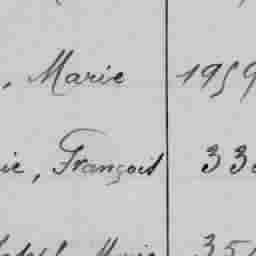 , Marie 1959
ie, François 33
Marie 35